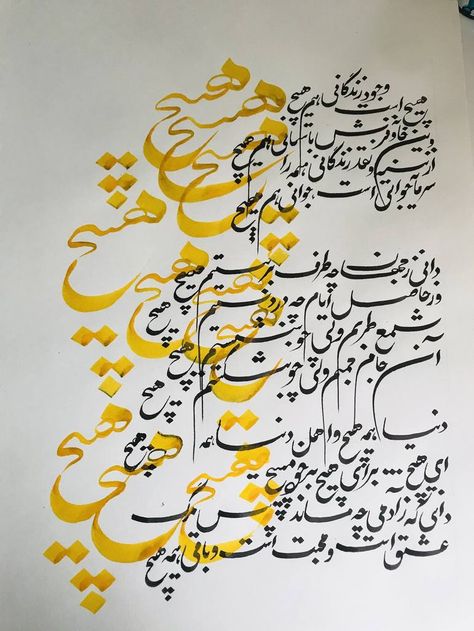 هیچ است وجود و زندگانی هم هیچ
وین خانه و فرش باستانی هم هیچ
از نسیه و نقد زندگانی همه را
سرمایه جوانی است جوانی هم هیچ
دانی ز جهان چه طرف بربستم هیچ
وز حاصل ایام چه در دستم هیچ
شمع طربم ولی چو بنشستم هیچ
آن جام جمم ولی چو بشکستم هیچ
دنیا همه هیچ و اهل دنیا همه هیچ
ای هیچ ... برای هیچ بر هیچ مپیچ
دانی که ز آدمی چه ماند پس مرگ
عشق است و محبت است و باقی همه هیچ
هیچ
هیچ
هیچ
هیچ
هیچ
هیچ
هیچ
هیچ
هیچ